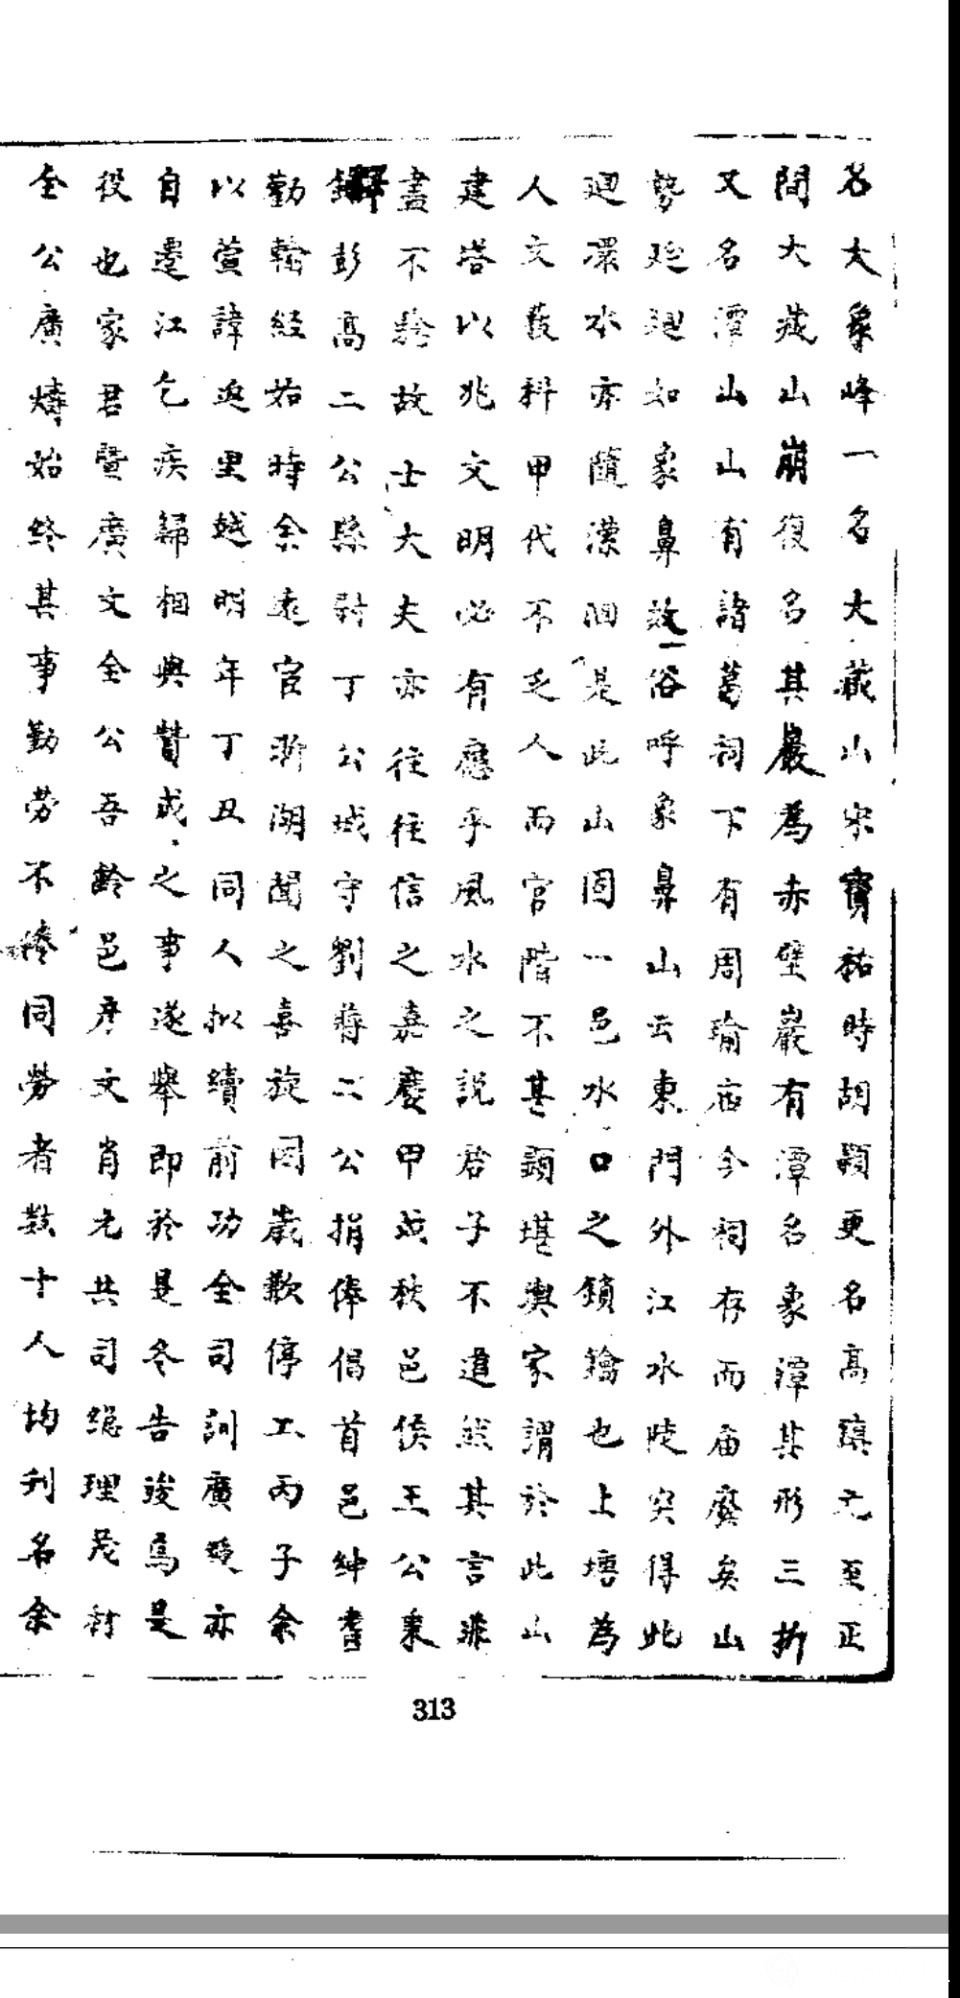 名大象峰一名大藏山宋寶祐時胡穎更名高鎮元至正
間大藏山崩復名其巖為赤壁巖有潭名象潭其形三折
又名潭山山有諸葛祠下有周瑜庙今祠存而庙廢矣山
勢迤邐如象鼻故俗呼象鼻山云東門外江水陡突得此
迴環水亦隨瀠洄是此山固一邑水口之鎖鑰也上塔為
人文菽科甲代不乏人而官階不甚顯堪輿家謂於此山
建塔以兆文明必有應乎風水之説君子不道然其言非
盡不驗故士大夫亦往往信之嘉慶甲戌秋邑侯王公秉
鐸彭高二公縣尉丁公城守劉蔣二公捐俸倡首邑紳耆
勸輸經始時余遠宦浙湖聞之喜旋因歲歉停工丙子余
以萱諱返里越明年丁丑同人拟續前功全司訓廣煖亦
自遷江乞疾歸相與贊成之事遂舉即於是冬告竣焉是
役也家君暨廣文全公吾齡邑彦文肖元共司總理茂材
全公廣燽始終其事勤劳不倦同勞者数十人均刋名余
313